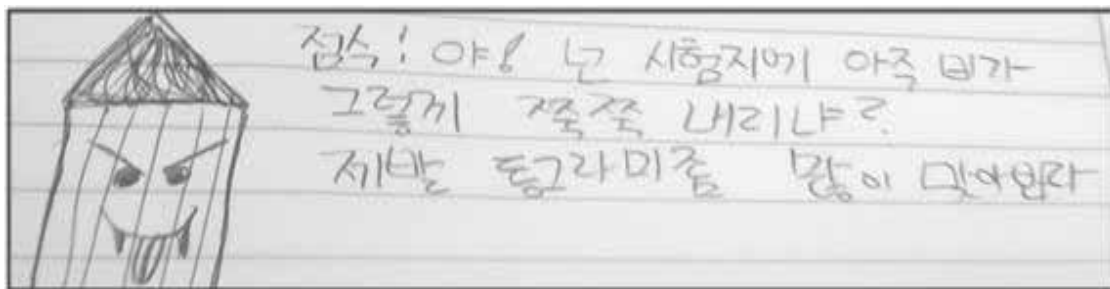 점수! 야! 넌 시험지에 아주 비가
그렇게 쭉쭉 내리냐?
제발 동그라미좀 많이 맞아봐라